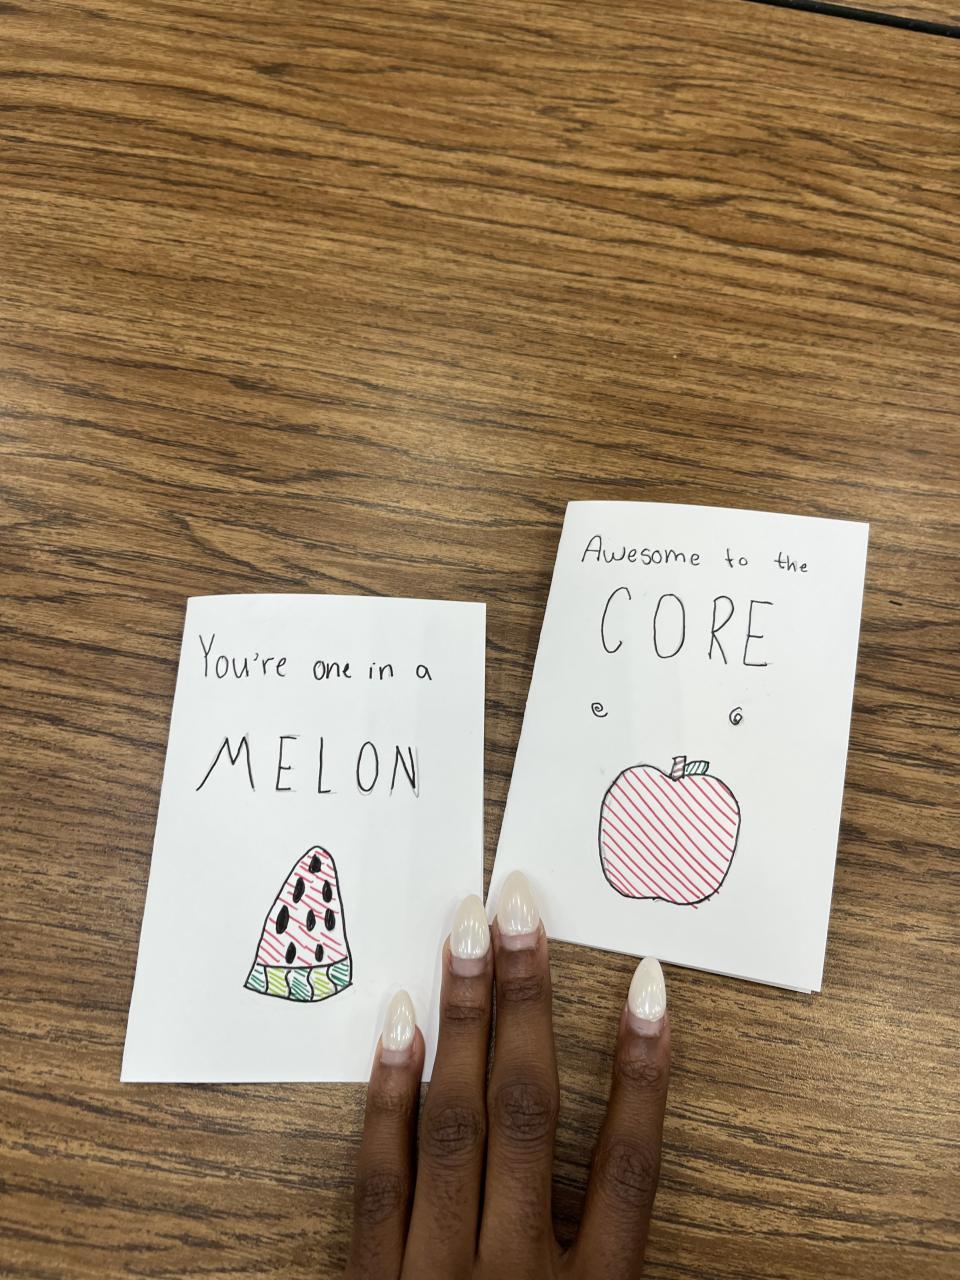 You're one in a
MELON
Awesome to the
CORE